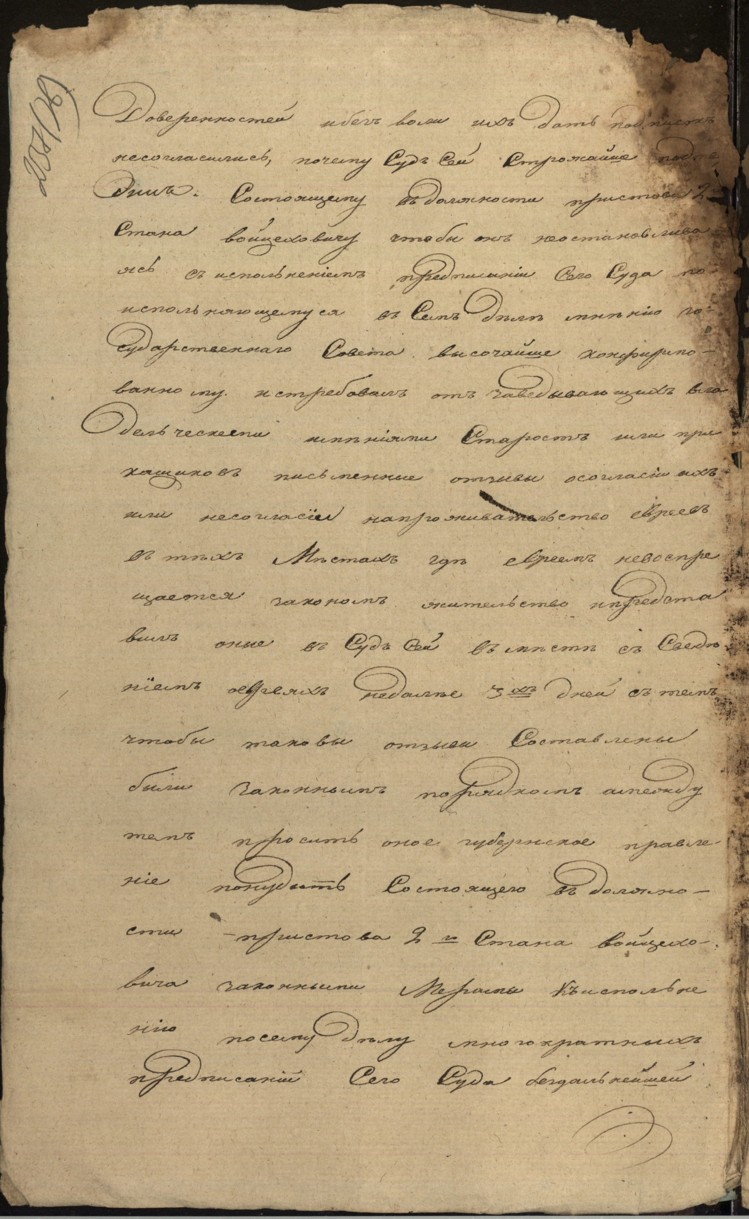 Доверенностей и безъ воли ихъ дать подписокъ
несогласились, почему Судъ сей Строжайше
Состоящему въ должности пристава 2
Стана войцеховичу чтобы онъ неостановлива
ясь съ испольненіемъ предписаній Сего Суда по
испольняющемуся въ Семъ дѣлѣ мнѣнію го-
сударственнаго Совета высочайше конфирмо-
ванному. истребовалъ отъ заведывающихъ вла
дельческими имѣніями Старостъ или при
кащиковъ письменные отзывы осогласіи ихъ
или несогласіи напроживательство евреевъ
въ тѣхъ Мѣстахъ гдѣ евреямъ невоспре
щается закономъ жительство ипредста
вилъ оные въ Судъ сей въ мѣстѣ съ Сведѣ
ніемъ оевреяхъ недалѣе 3хъ дней съ темъ
чтобы таковы отзывы Составлены
были законнымъ порядкомъ амежду
темъ просить оное губернское правле
ніе понудить Состоящего въ должно-
сти пристава 2го Стана войцехо-
вича законными Мерами къ исполне
нію посему дѣлу многократныхъ
предписаній Сего Суда бездальнейшей